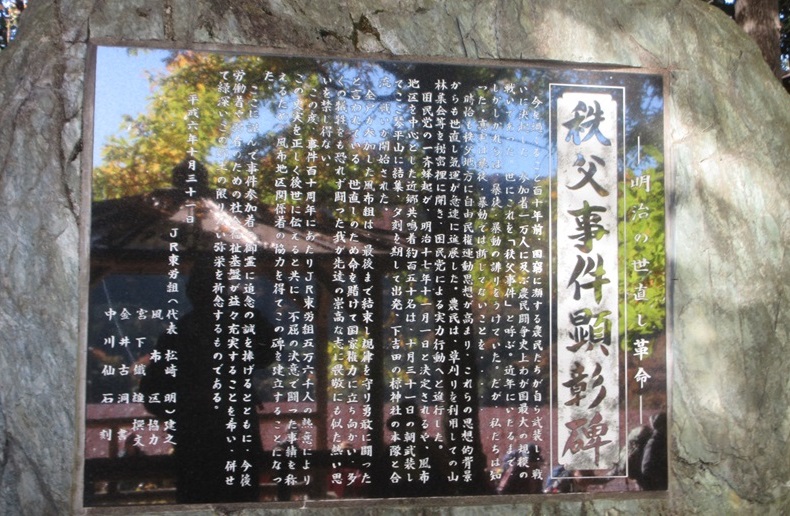 ―明治の世直し革命―
秩父事件顕彰碑
今を遡ること百十年前、困窮に瀕する農民たちが自ら武装し、戦
いに決起した。参加者一万人に及ぶ農民闘争史上わが国最大の規模の
戦いであった。世にこれを「秩父事件」と呼ぶ。近年にいたるまで
しかしかれらは「暴徒・暴動」の謗りをうけていた。だが、私たちは知
った。事実は暴徒・暴動では断じてないことを…
時あたかも秩父地方に自由民権運動思想が高まり、これらの思想的背景
からも世直し気運が急速に進展した。農民は、草刈りを利用しての山
林集会等を秘密裡に開き、困民党による実力行動へと進行した。
困民党の一斉蜂起が、明治十七年十一月一日と決定されるや、風布
地区を中心とした近郷共鳴者約百五十名は、十月三十一日の朝武装し
て 琴平山に結集、夕刻を期して出発、下吉田の椋神社の本隊と合
流し、戦 が開始された。
全 参加した風布組は、最後まで結束し規律を守り勇敢に闘った
と言われている。世直しのため命を賭けて国家権力に立ち向かい、多
くの犠牲をも恐れず闘った我が先達の崇高な志に畏敬にも似た熱い思
いを禁じ得ない。
この度、事件百十周年にあたりJR東労組五万六千人の熱意により
この史実を正しく後世に伝えると共に、不屈の決意で闘った事績を称
えるため、風布地区関係者の協力を得てこの碑を建立することになっ
た。
ここに謹んで事件参加者の御霊に追念の誠を捧げるとともに、今後
労働者や のための社会福祉基盤が益々充実することを希い、併せ
て緑深いこの 限りない弥栄を祈念するものである。
平成六年十月三十一日
JR東労組(代表 松崎 明)建之
風布区協力
宮下 雄撰文
金井古洞書
中川仙石刻